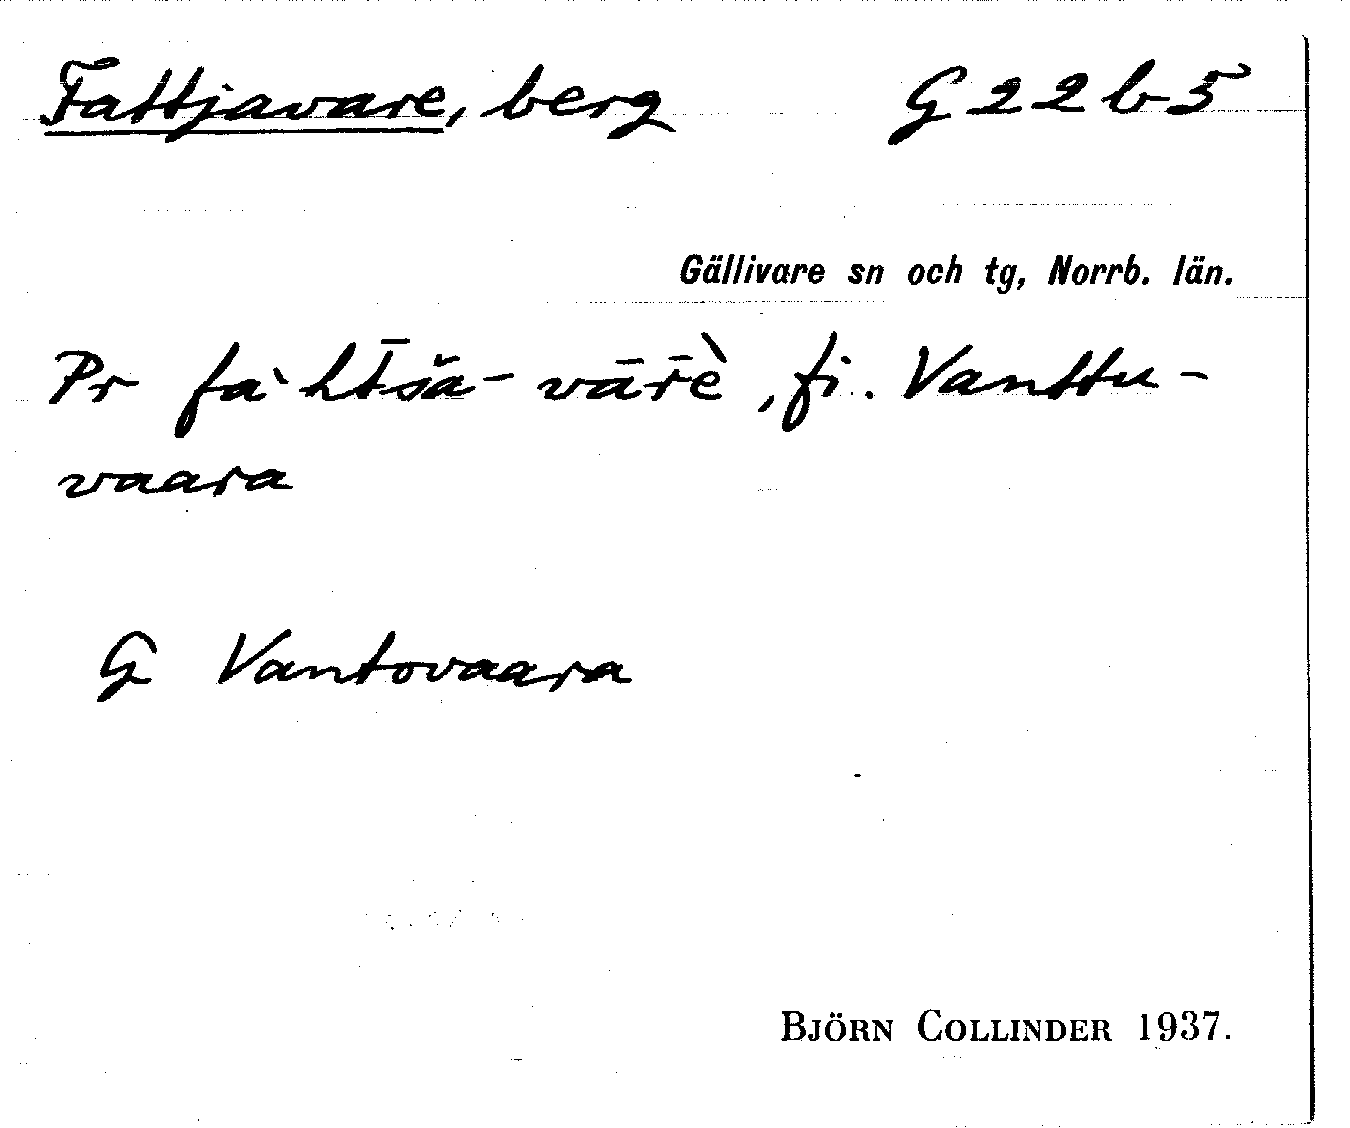 Fattjavare, berg G 22 b 5
Gällivare sn och tg, Norrb. län.
Pr fa`htšă-vārè, fi. Vanttu-
vaara
G Vantovaara
BJÖRN COLLINDER 1937.